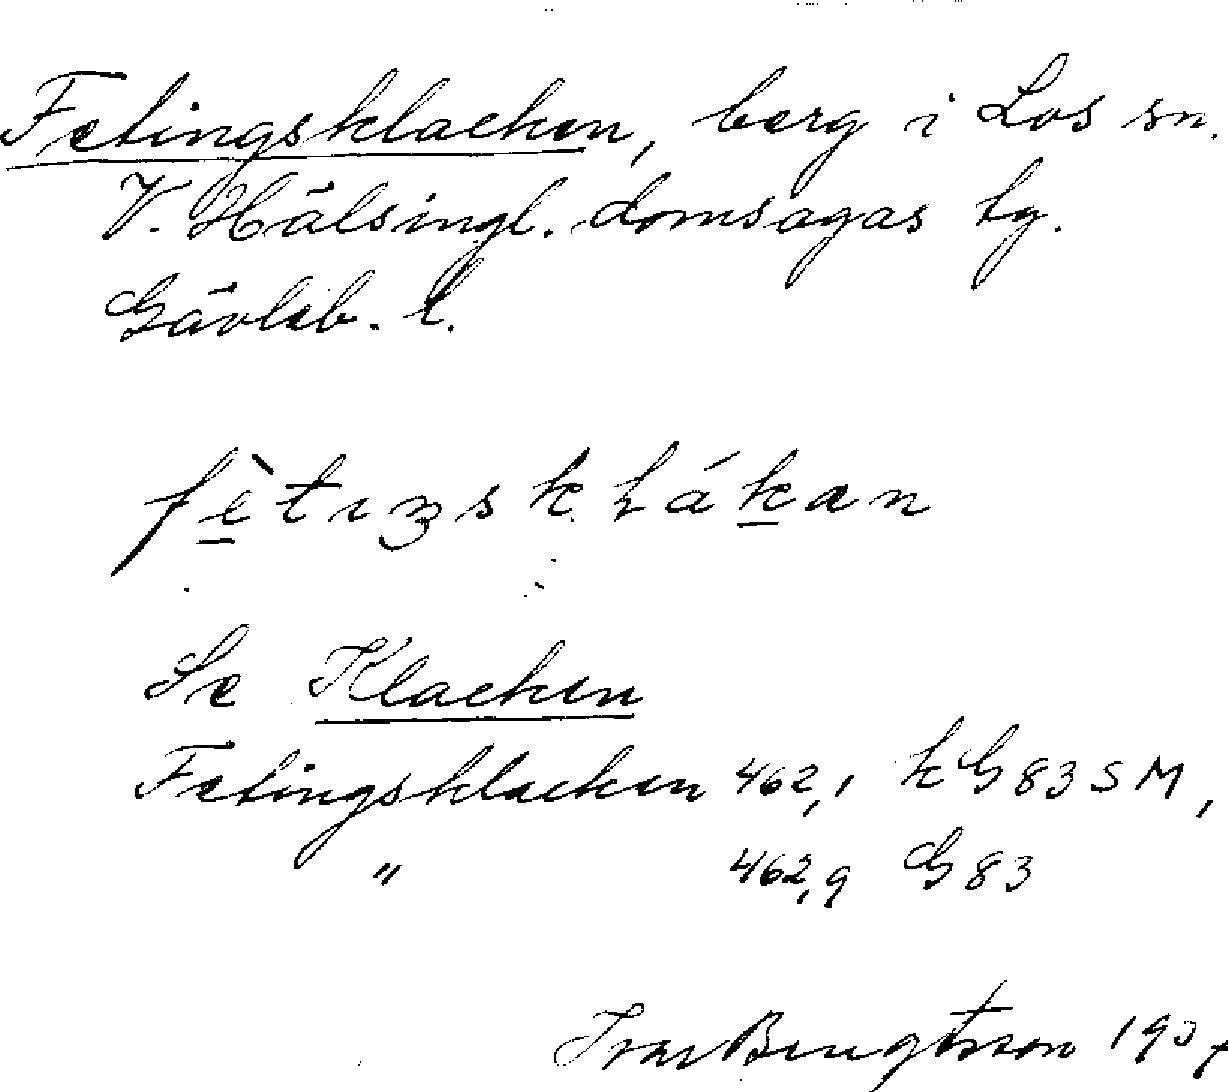 Fetingsklacken, berg i Los sn.
V. Hälsingl. domsagas tg.
Gävleb. l.
Se Klacken
Fetingsklacken 462,1 kG83SM,
" 462,9 G83
Ivar Bengtsson